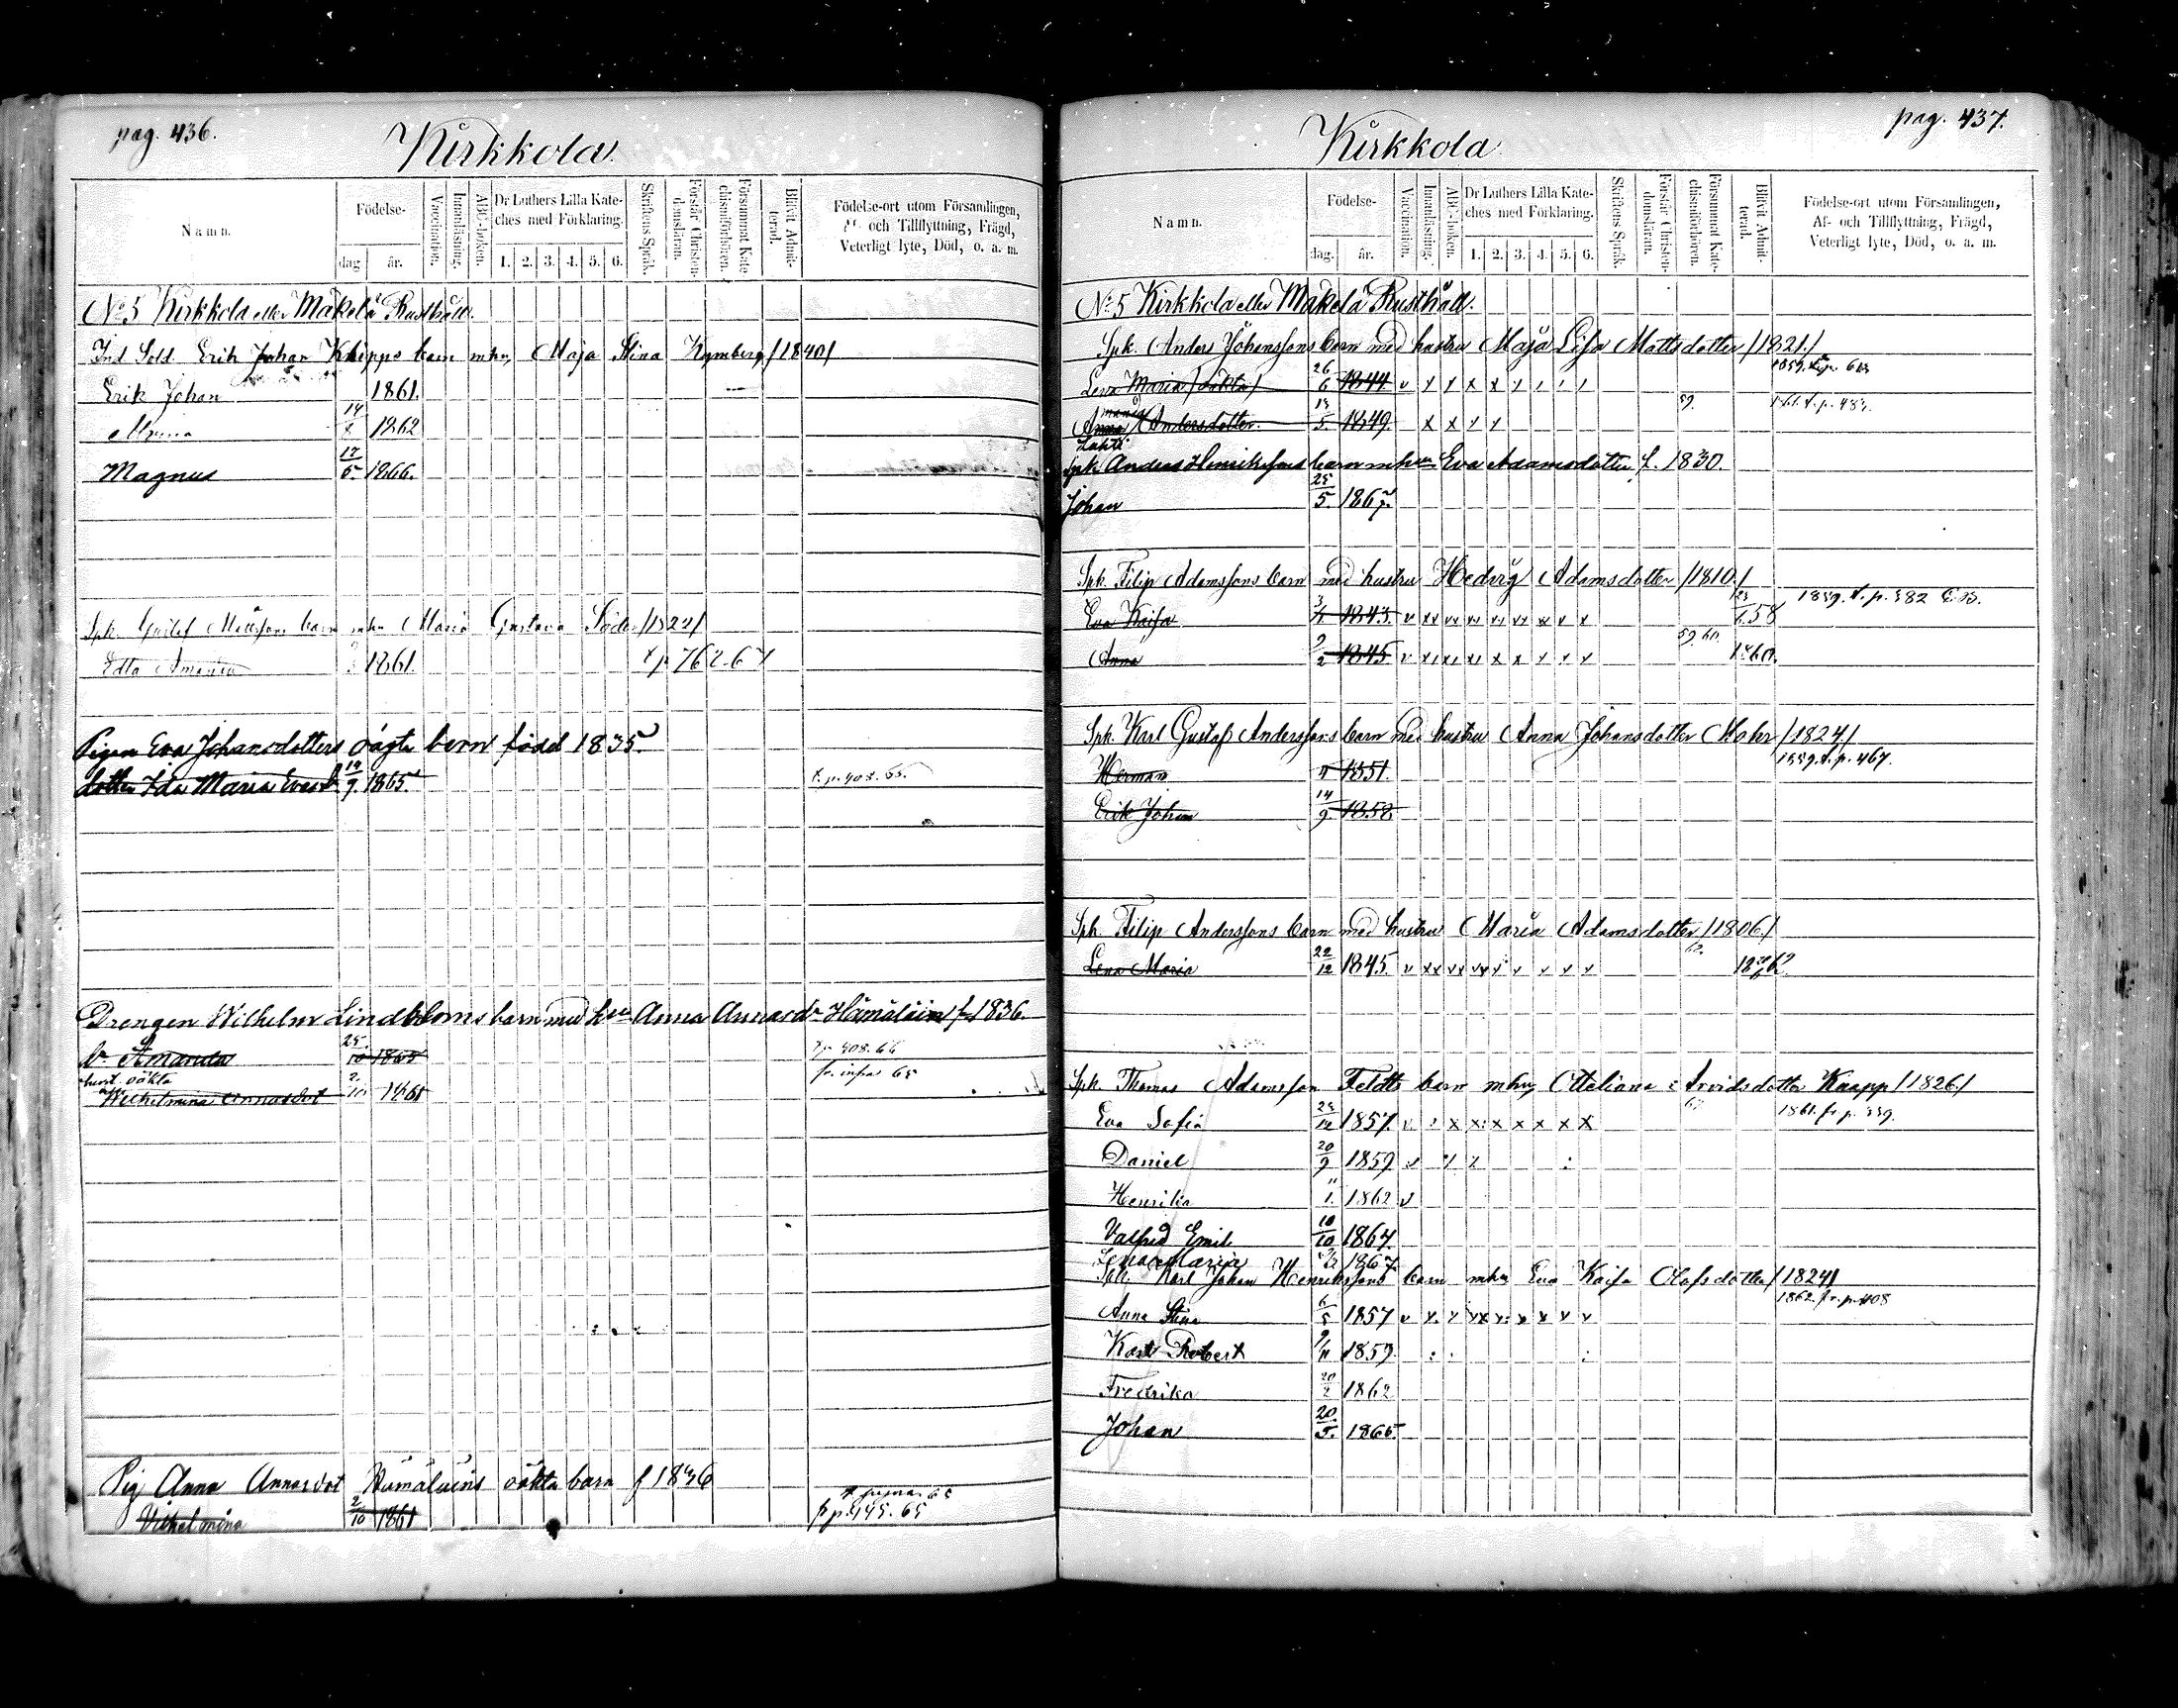 pag. 436.
Kirkkola
Namn.
Födelse-
dag
år.
Vaccination.
Innanläsning.
ABC-boken.
Dr Luthers Lilla Kate-
ches med Förklaring.
1. 2. 3. 4. 5. 6.
Skriftens Språk.
Förstår Christen-
domsläran.
Försummat Kate-
chismiförhören.
Blifvit Admit-
terad.
Födelse-ort utom Församlingen,
Af- och Tillflyttning, Frägd,
Veterligt lyte, Död, o. a. m.
No 5 Kirkkola eller Mäkelä Rusthåll.
Ind Sold. Erik Johan Khipps barn mhu Maja Stina Nymberg /1840/
Erik Johan 1861.
14 1862
Magnus 12/5 1866.
Spk. Gustaf Mattssons barn mhu Maria Gustava Söder /1822/
Edla Amanda 1861. t p 762-67
Pigan Eva Johansdotters oägta barn född 1835
dotter Ida Maria 19/9 1865 t.p. 408. 65.
Drengen Wilhelm Lindbloms barn med hu Anna Annasdr Hämäläin f 1836.
dr Amanda 25/10 1865 t.p 408. 66
hust. oäkta fr. infra 65
Wilhelmina Annasdot 2/10 1861
Pig Anna Annasdot Hämäläins oäkta barn f 1836
Vilhelmina 2/10 1861 fr p. 445. 65
pag. 437.
Kirkkola
Namn.
Födelse-
dag.
år.
Vaccination.
Innanläsning.
ABC-boken.
Dr Luthers Lilla Kate-
ches med Förklaring.
1. 2. 3. 4. 5. 6.
Skriftens Språk.
Förstår Christen-
domsläran.
Försummat Kate-
chismiförhören.
Blifvit Admit-
terad.
Födelse-ort utom Församlingen,
Af- och Tillflyttning, Frägd,
Veterligt lyte, Död, o. a. m.
No 5 Kirkkola eller Mäkelä Rusthåll.
Spk. Anders Johanssons barn med hustru Maja Lisa Mattsdotter /1821/
Lena Maria /oäkta/ 26/6 1844 v x x x x
Anna Andersdotter 13/5 1849. x x x x 59.
Spk Anders Henrikssons barn m hu Eva Adamsdotter f. 1830.
Johan 25/5. 1867.
Spk. Filip Adamssons barn med hustru Hedvig Adamsdotter /1810/
Eva Kaisa 1843. 58 1859. t. p. 382
Anna 2/2 1845 59. 60. 1860.
Spk Karl Gustaf Anderssons barn med hustru Anna Johansdotter Moher /1824/
Herman 1851. 1859. t. p. 467.
Erik Johan 14/9 1858
Spk Filip Anderssons barn med hustru Maria Adamsdotter /1806/
Lena Maria 22/12 1845. 62. 1862
Spk Thomas Adamsson Feldts barn mhu Otteliana Arvidsdotter Knapp /1826/
Eva Sofia 1857. 1861. fr. p. 339.
Daniel 20/9 1859
Henrika 1862 v
Valfrid Emil 10/10 1864.
Lena Maria 1867
Spk. Karl Johan Henrikssons barn mhu Eva Kaisa Olofsdotter /1824/
Anna Stina 6/5 1857 1862. fr. p. 408
Karl Robert 9/11 1859
Fredrika 20/2 1862
Johan 20/5. 1865.